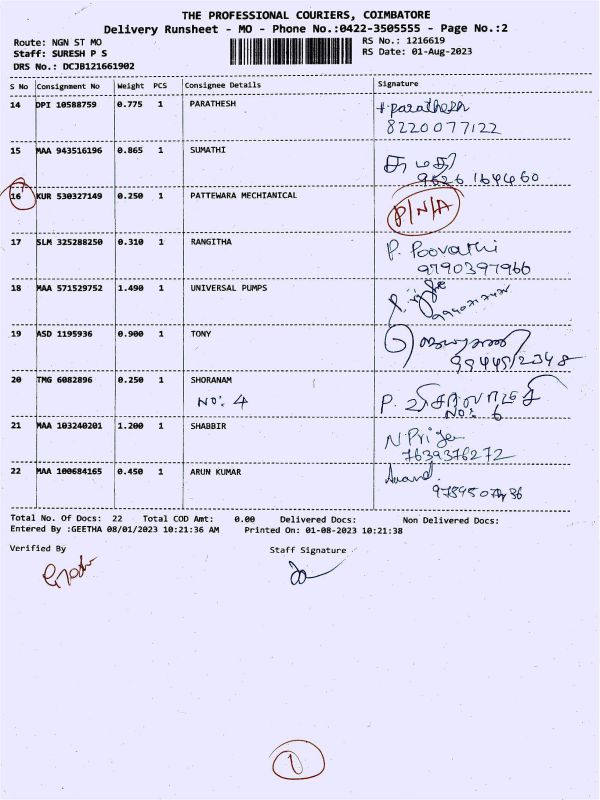 THE PROFESSIONAL COURIERS, COIMBATORE
Delivery Runsheet - MO - Phone No.:0422-3505555 - Page No.:2
Route: NGN ST MO RS No.: 1216619
Staff: SURESH P S RS Date: 01-Aug-2023
DRS No.: DCJB121661902
S No Consignment No Weight PCS Consignee Details Signature
14 DPI 10588759 0.775 1 PARATHESH parathesh
8220077122
15 MAA 943516196 0.865 1 SUMATHI சுமதி
16 KUR 530327149 0.250 1 PATTEWARA MECHIANICAL P/N/A
17 SLM 325288250 0.310 1 RANGITHA P. Poovathi
9790397966
18 MAA 571529752 1.490 1 UNIVERSAL PUMPS
19 ASD 1195936 0.900 1 TONY
20 TMG 6082896 0.250 1 SHORANAM P.
NO: 4 NO: 6
21 MAA 103240201 1.200 1 SHABBIR N Priya
7639376272
22 MAA 100684165 0.450 1 ARUN KUMAR Anand
Total No. Of Docs: 22 Total COD Amt: 0.00 Delivered Docs: Non Delivered Docs:
Entered By :GEETHA 08/01/2023 10:21:36 AM Printed On: 01-08-2023 10:21:38
Verified By Staff Signature
1